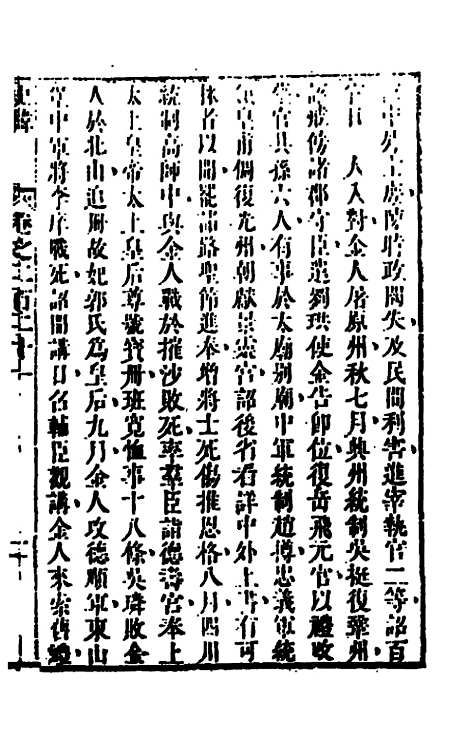 中外士庶陳時政闕失及民間利害進宰執官二等詔百
官日一人入對金人屠原州秋七月興州統制吳挺復鞏州
詔戒飭諸郡守臣遣劉珙使金告卽位復岳飛元官以禮收
葬官其孫六人有事於太廟別廟中軍統制趙撙忠義軍統
皇甫倜復光州朝獻景靈宮詔後省看詳中外上書有可
采者以聞罷諸路聖節進奉增將士死傷推恩格八月四川
統制高師中與金人戰於摧沙敗死率羣臣詣德壽宮奉上
太上皇帝太上皇后尊號寶冊班寬恤事十八條吳璘敗金
人於北山追冊故妃郭氏爲皇后九月金人攻德順軍東山
堡中軍將李庠戰死詔開講日召輔臣觀講金人來索舊禮
卷之二百二十